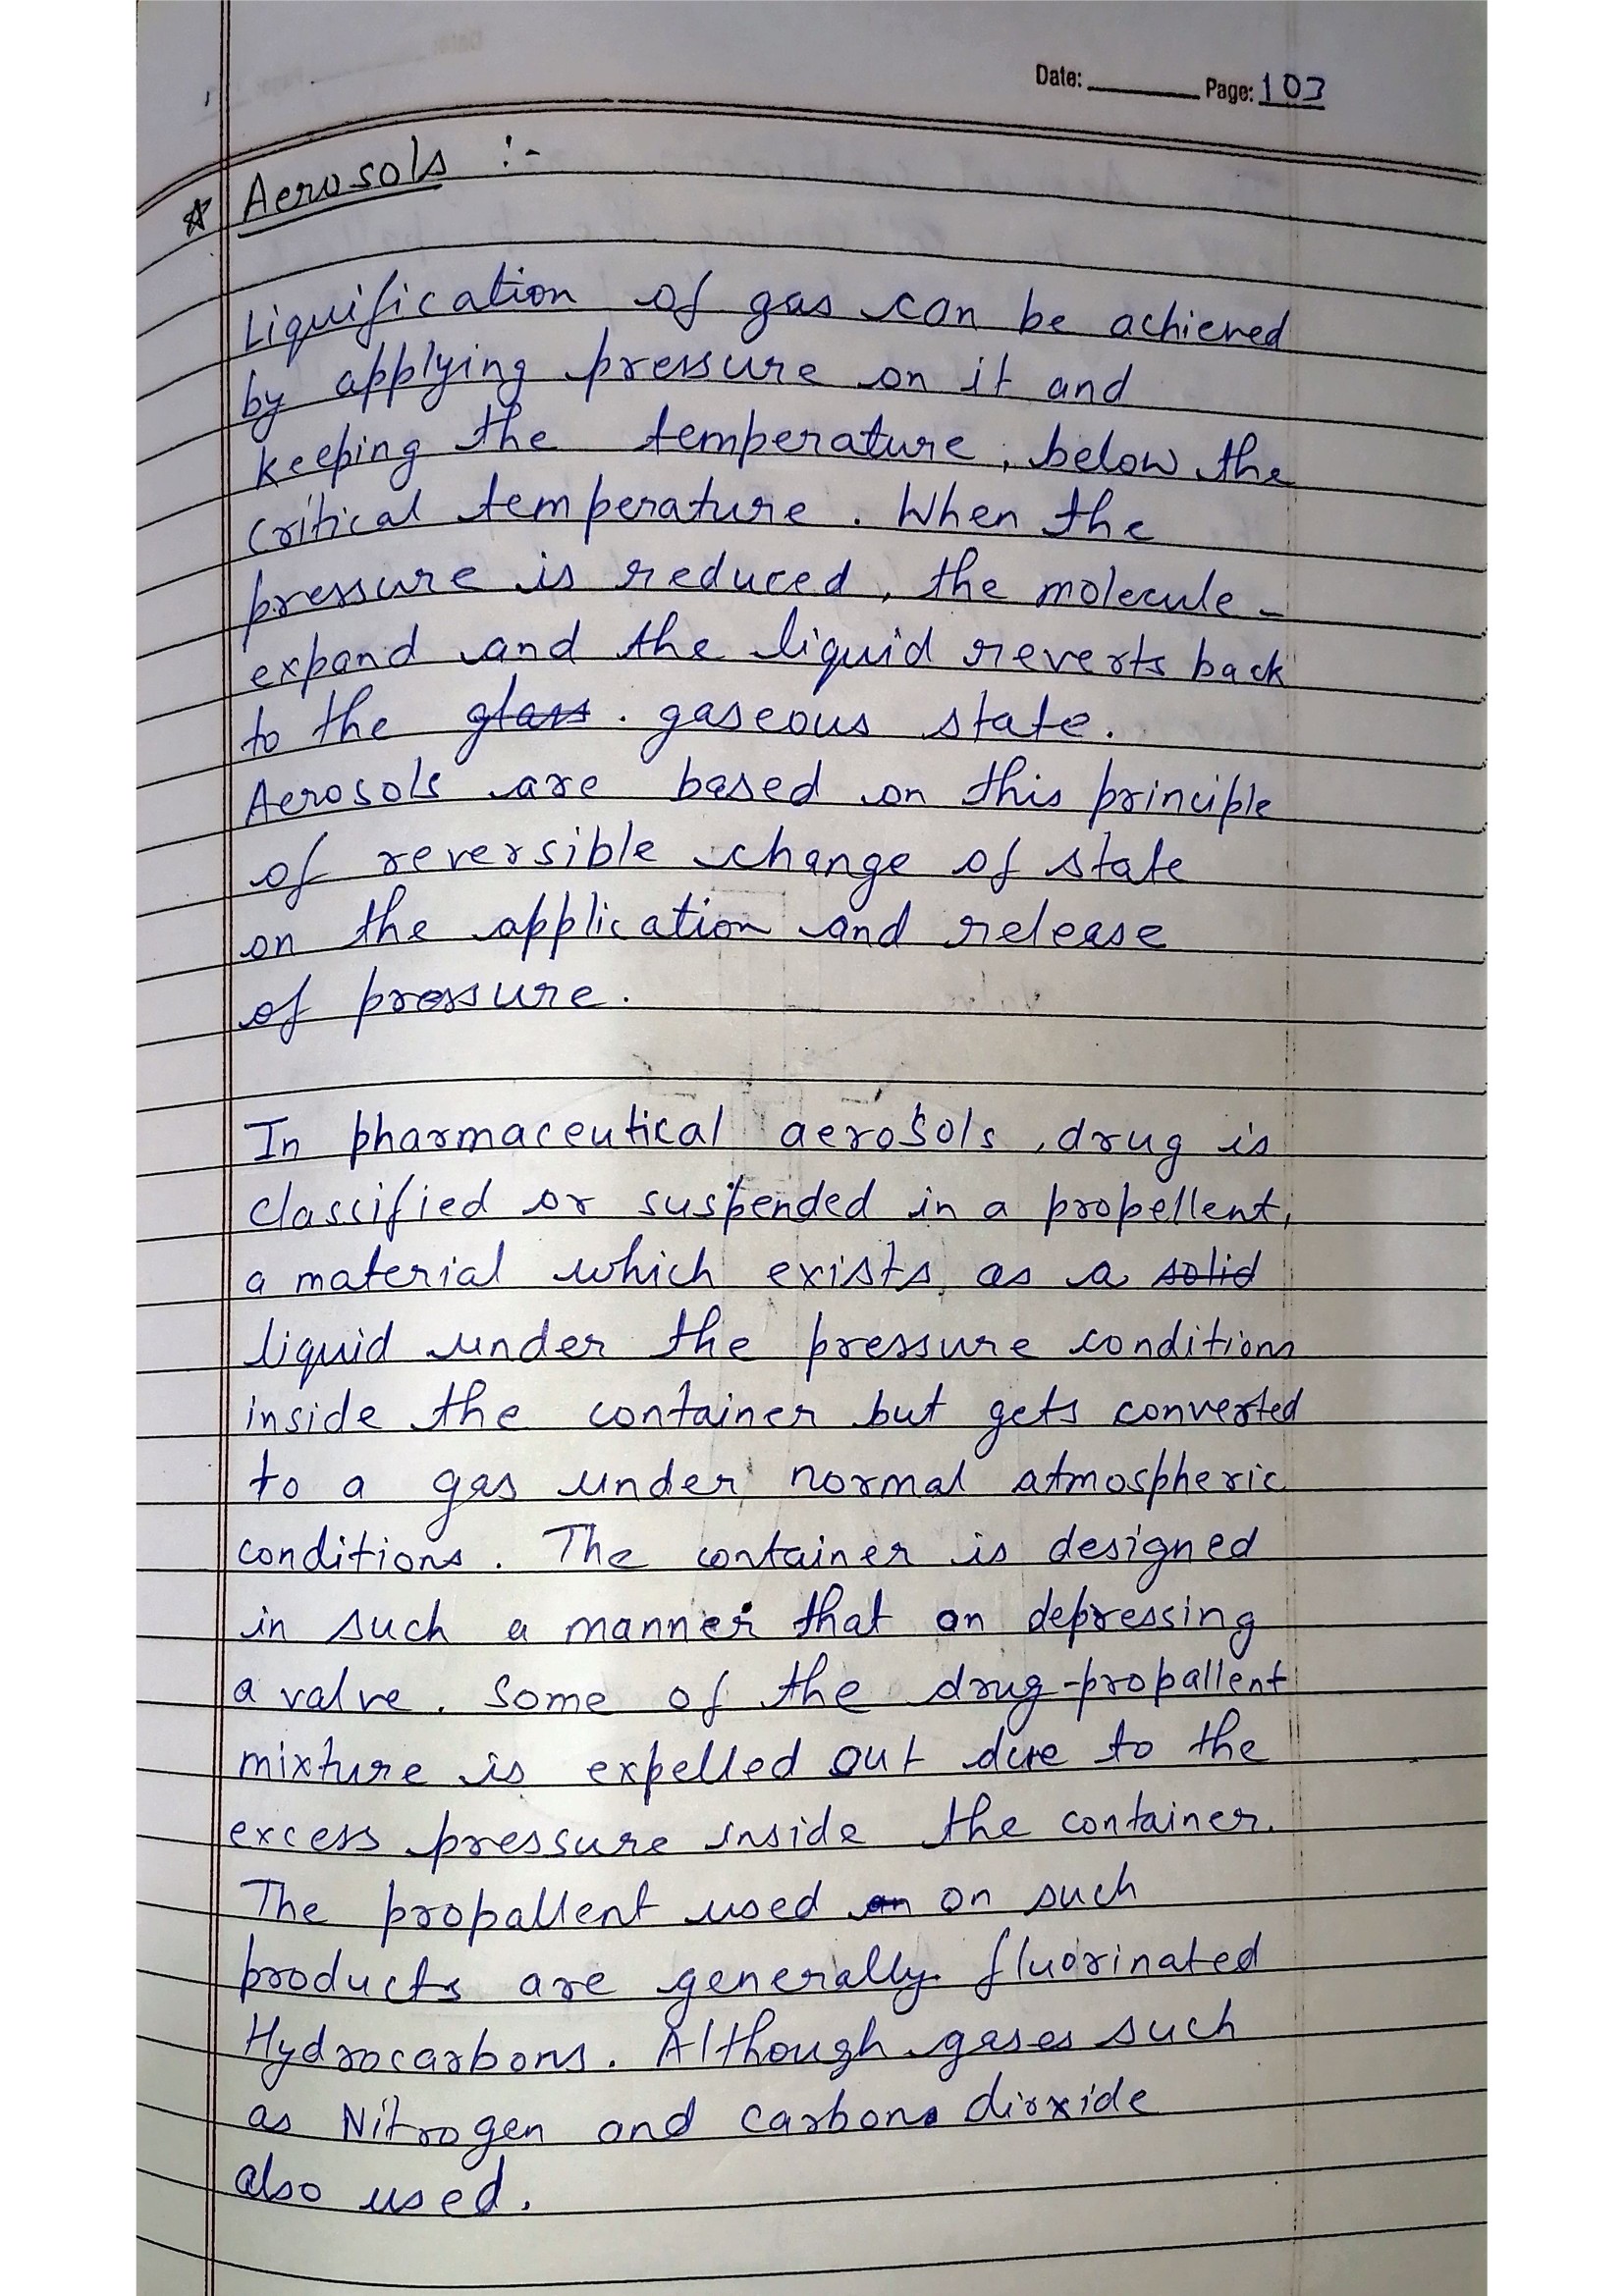 Date: Page: 103
☆ Aerosols :-
Liquification of gas can be achieved
by applying pressure on it and
keeping the temperature, below the
critical temperature. When the
pressure is reduced, the molecule -
expand and the liquid reverts back
to the glass. gaseous state.
Aerosols are based on this principle
of reversible change of state
on the application and release
of pressure.
In pharmaceutical aerosols, drug is
classified or suspended in a propellent,
a material which exists as a solid
liquid under the pressure conditions
inside the container but gets converted
to a gas under normal atmospheric
conditions. The container is designed
in such a manner that on depressing
a valve. Some of the drug-propallent
mixture is expelled out due to the
excess pressure inside the container.
The propallent used an on such
products are generally fluorinated
Hydrocarbons. Although gases such
as Nitrogen and carbon dioxide
also used.